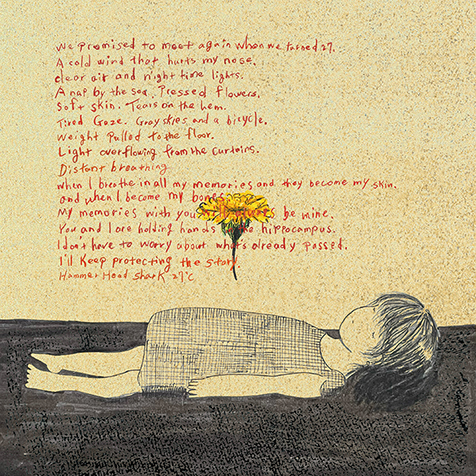 We promised to meet again when we turned 27.
A cold wind that hurts my nose.
clear air and night time lights.
A nap by the sea. Pressed flowers.
Soft skin. Tears on the hem.
Tired Gaze. Gray skies and a bicycle.
Weight pulled to the floor.
Light overflowing from the curtains.
Distant breathing
when I breathe in all my memories and they become my skin.
and when I become my bones
My memories with you be mine.
You and I are holding hands the hippocampus.
I don't have to worry about what's already passed.
I'll Keep protecting the story.
Hammer Head Shark 27°C